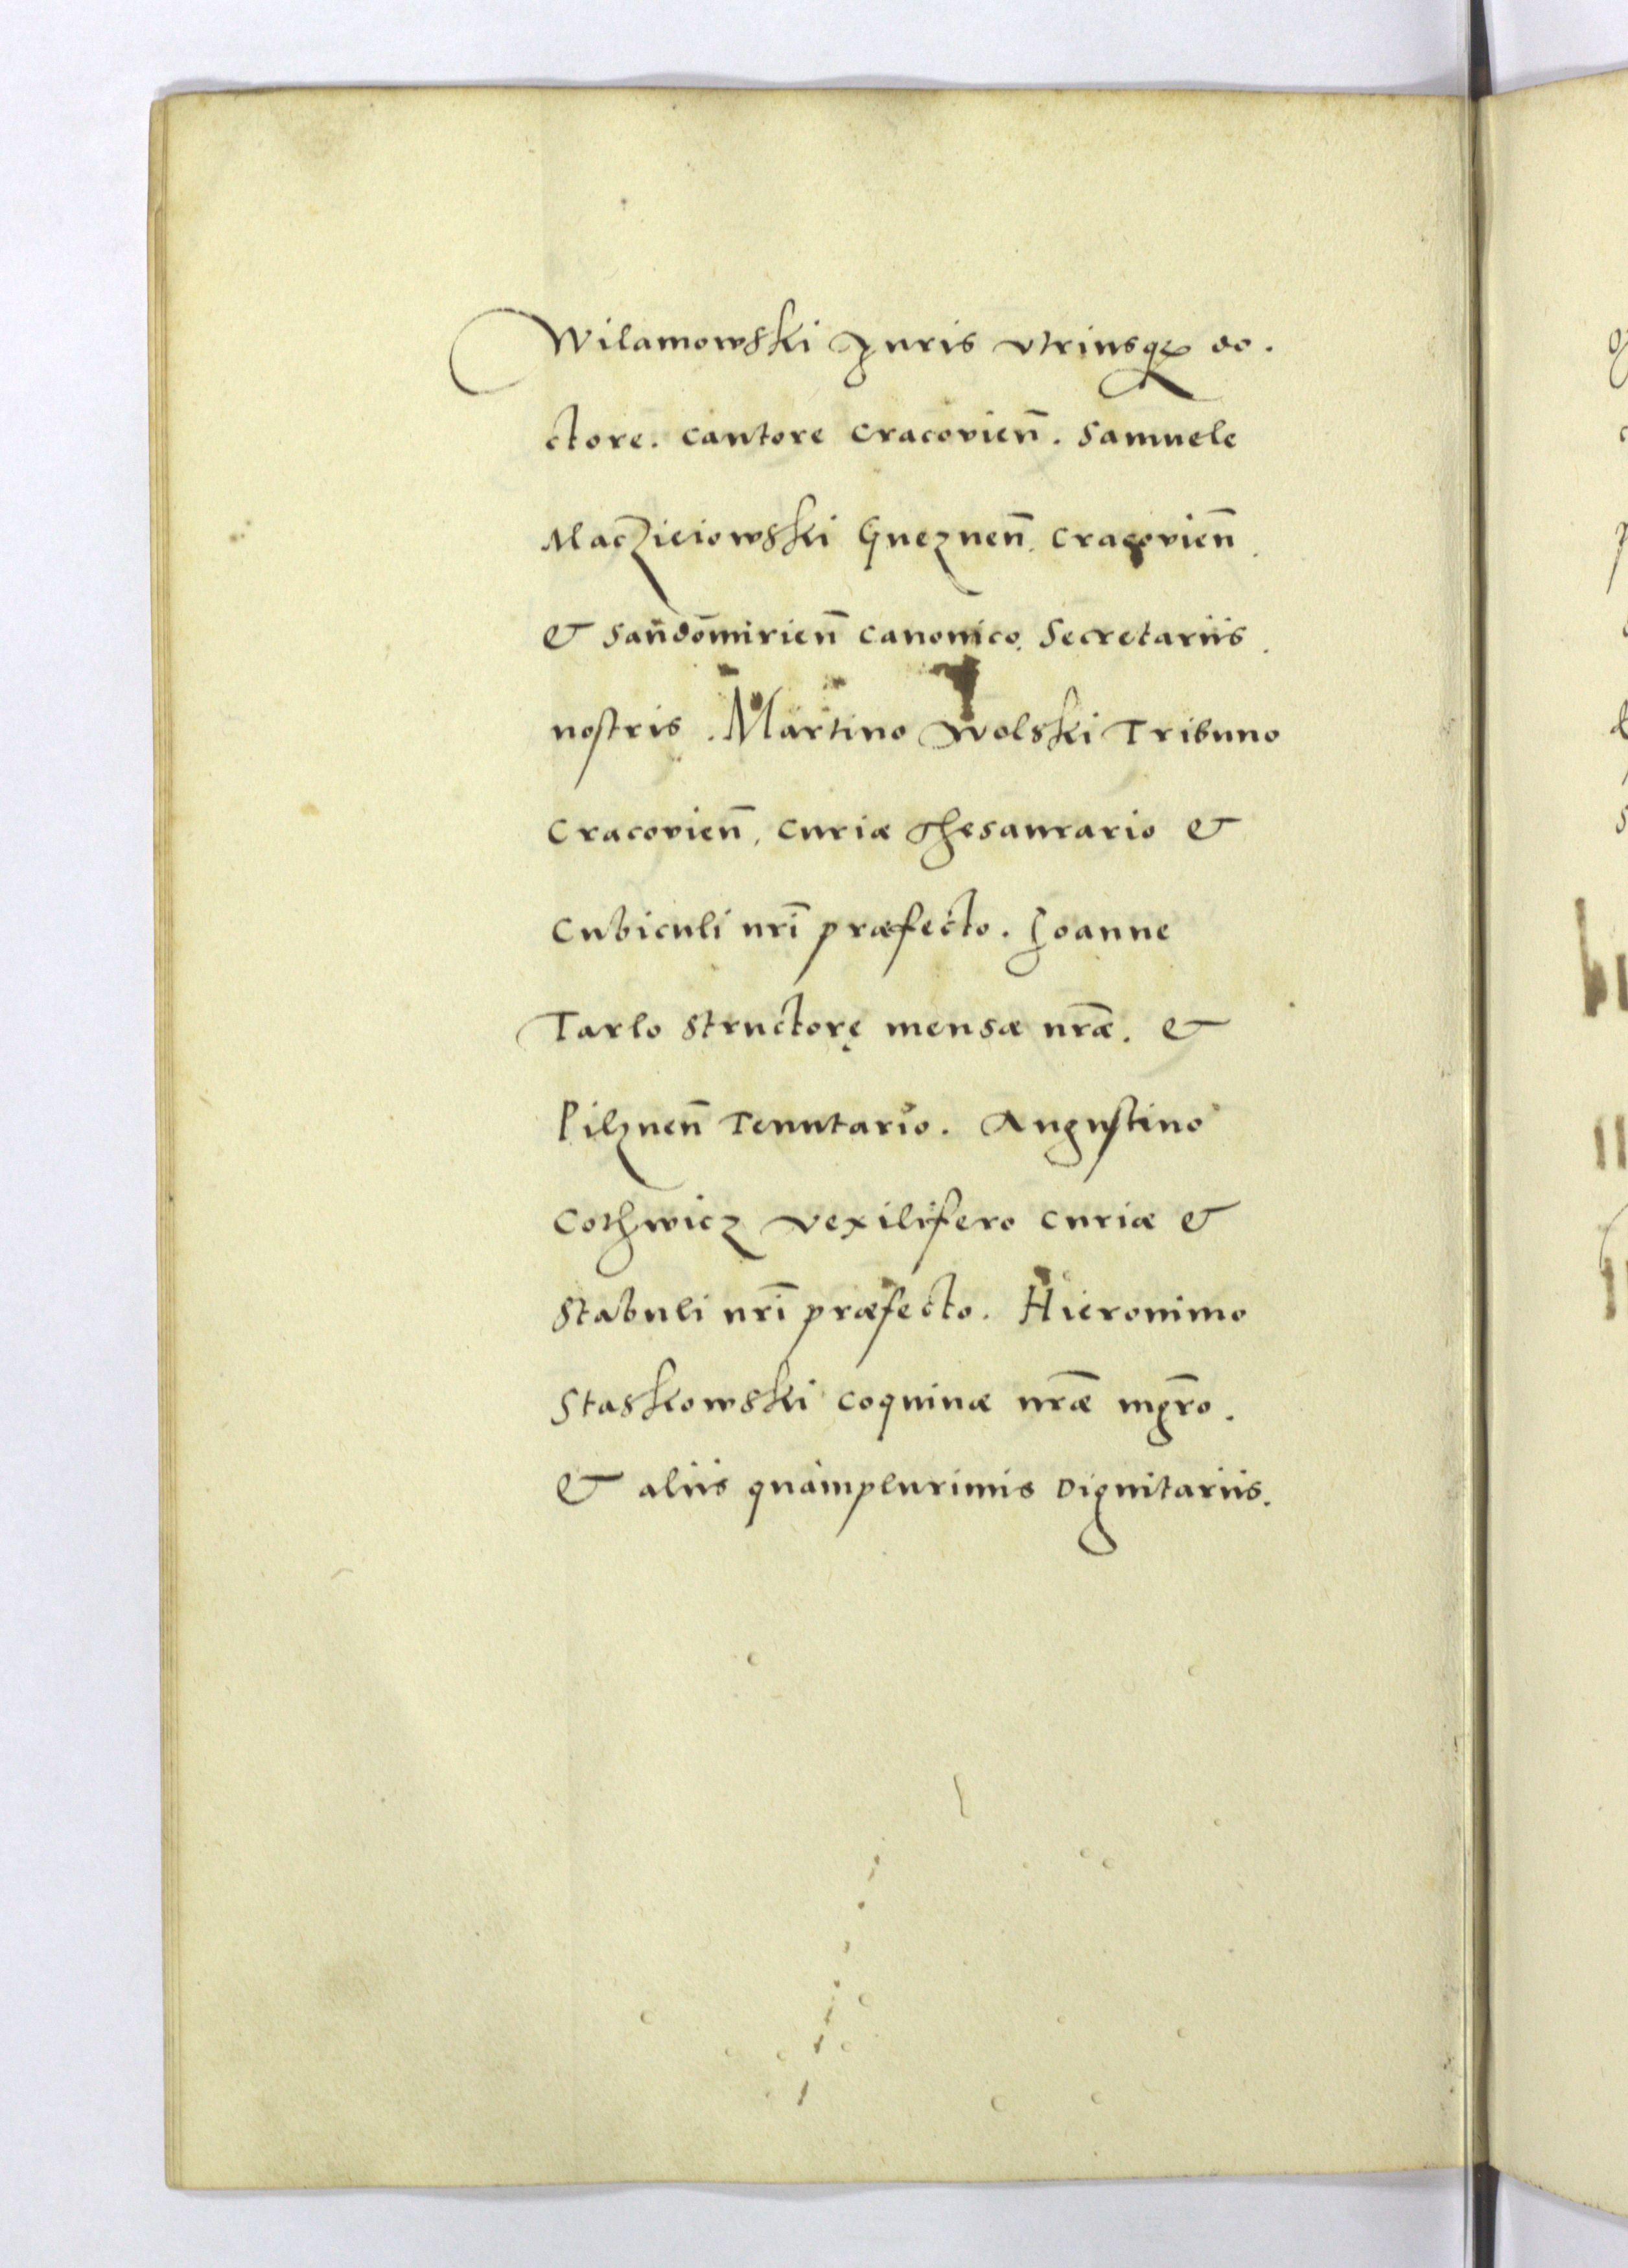 Wilamowski Juris vtriusq́ȝ do.
ctore. Cantore Cracovien̄. Samuele
Maczieiowski Gneznen̄. Cracovien̄.
& San̄dōmirien̄ Canonico. Secretariis.
nostris. Martino Wolski Tribuno
Cracovien̄, Curiæ Thesaurario &
Cubiculi nr̄i præfecto. Joanne
Tarlo Structorę mensæ nr̄æ. &
Pilznen̄ Tenutario. Augustino
Cothwicz vexilifero Curiæ &
Stabuli nr̄i præfecto. Hieronimo
Staskowski Coquinæ nr̄æ mgr̄o.
& aliis quàmplurimis Dignitariis.